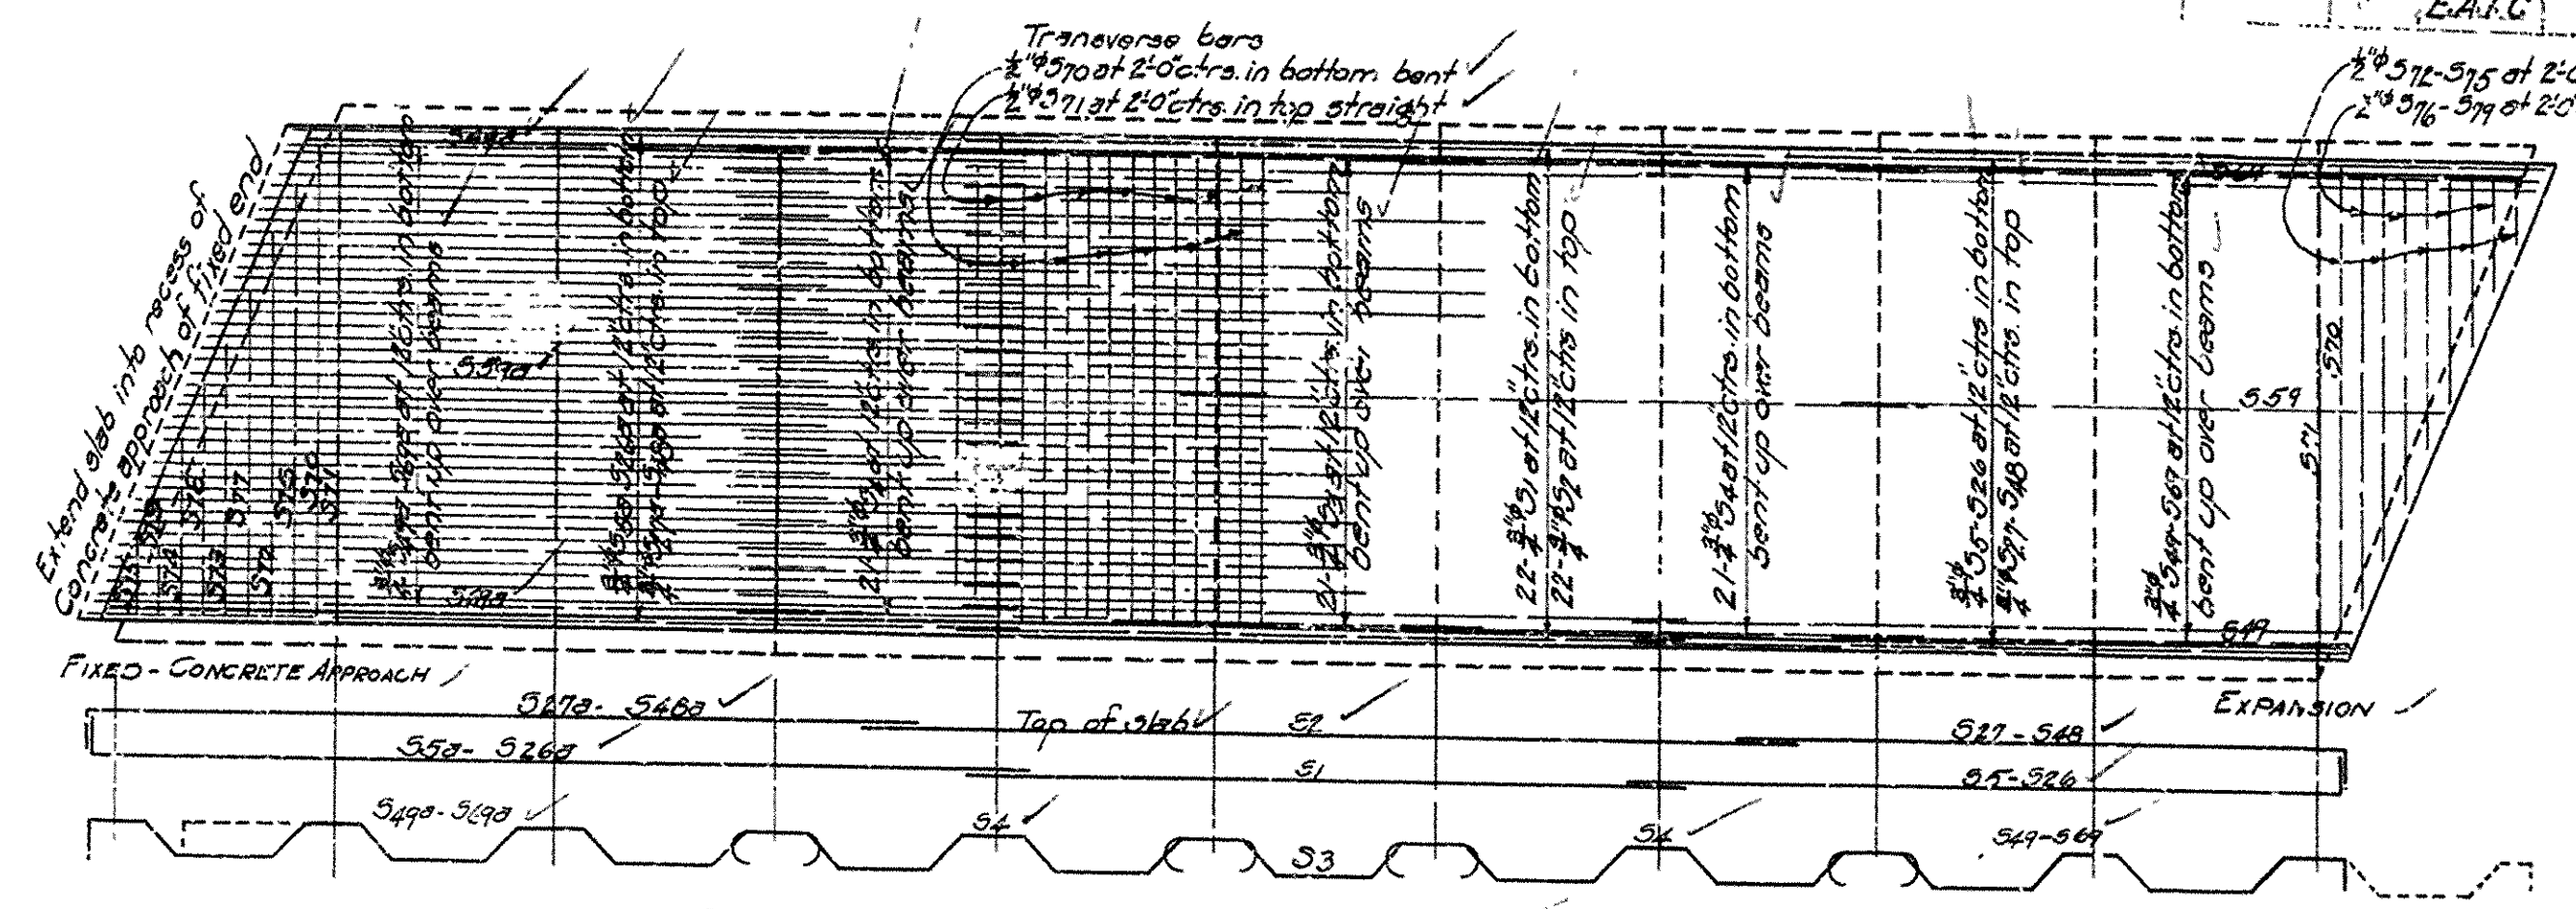 E.A.I.C
Transverse bars
½"ϕ S70 at 2'-0" ctrs. in bottom bent
½"ϕ S71 at 2'-0" ctrs. in top straight
½"ϕ S72-S75 at 2'-0
½"ϕ S76-S79 at 2'-0"
Extend slab into recess of
Concrete approach of fixed end
S49a
S59a
S69a
S74
S78
S73
S77
S72
S75
S70
S71
¾"ϕ S49a-S69a at 12" ctrs. in bottom
bent up over beams
¾"ϕ S5a-S26a at 12" ctrs. in bottom
¾"ϕ S27a-S48a at 12" ctrs. in top
21-¾"ϕ S4 at 12" ctrs. in bottom
bent up over beams
21-¾"ϕ S3 at 12" ctrs. in bottom
bent up over beams
22-¾"ϕ S1 at 12" ctrs. in bottom
22-¾"ϕ S2 at 12" ctrs. in top
21-¾"ϕ S4 at 12" ctrs. in bottom
bent up over beams
¾"ϕ S5-S26 at 12" ctrs. in bottom
¾"ϕ S27-S48 at 12" ctrs. in top
¾"ϕ S49-S69 at 12" ctrs. in bottom
bent up over beams
S59
S70
S71
S49
FIXED - CONCRETE APPROACH
EXPANSION
S27a - S48a
Top of slab
S2
S27 - S48
S5a - S26a
S1
S5 - S26
S49a - S69a
S4
S3
S4
S49 - S69